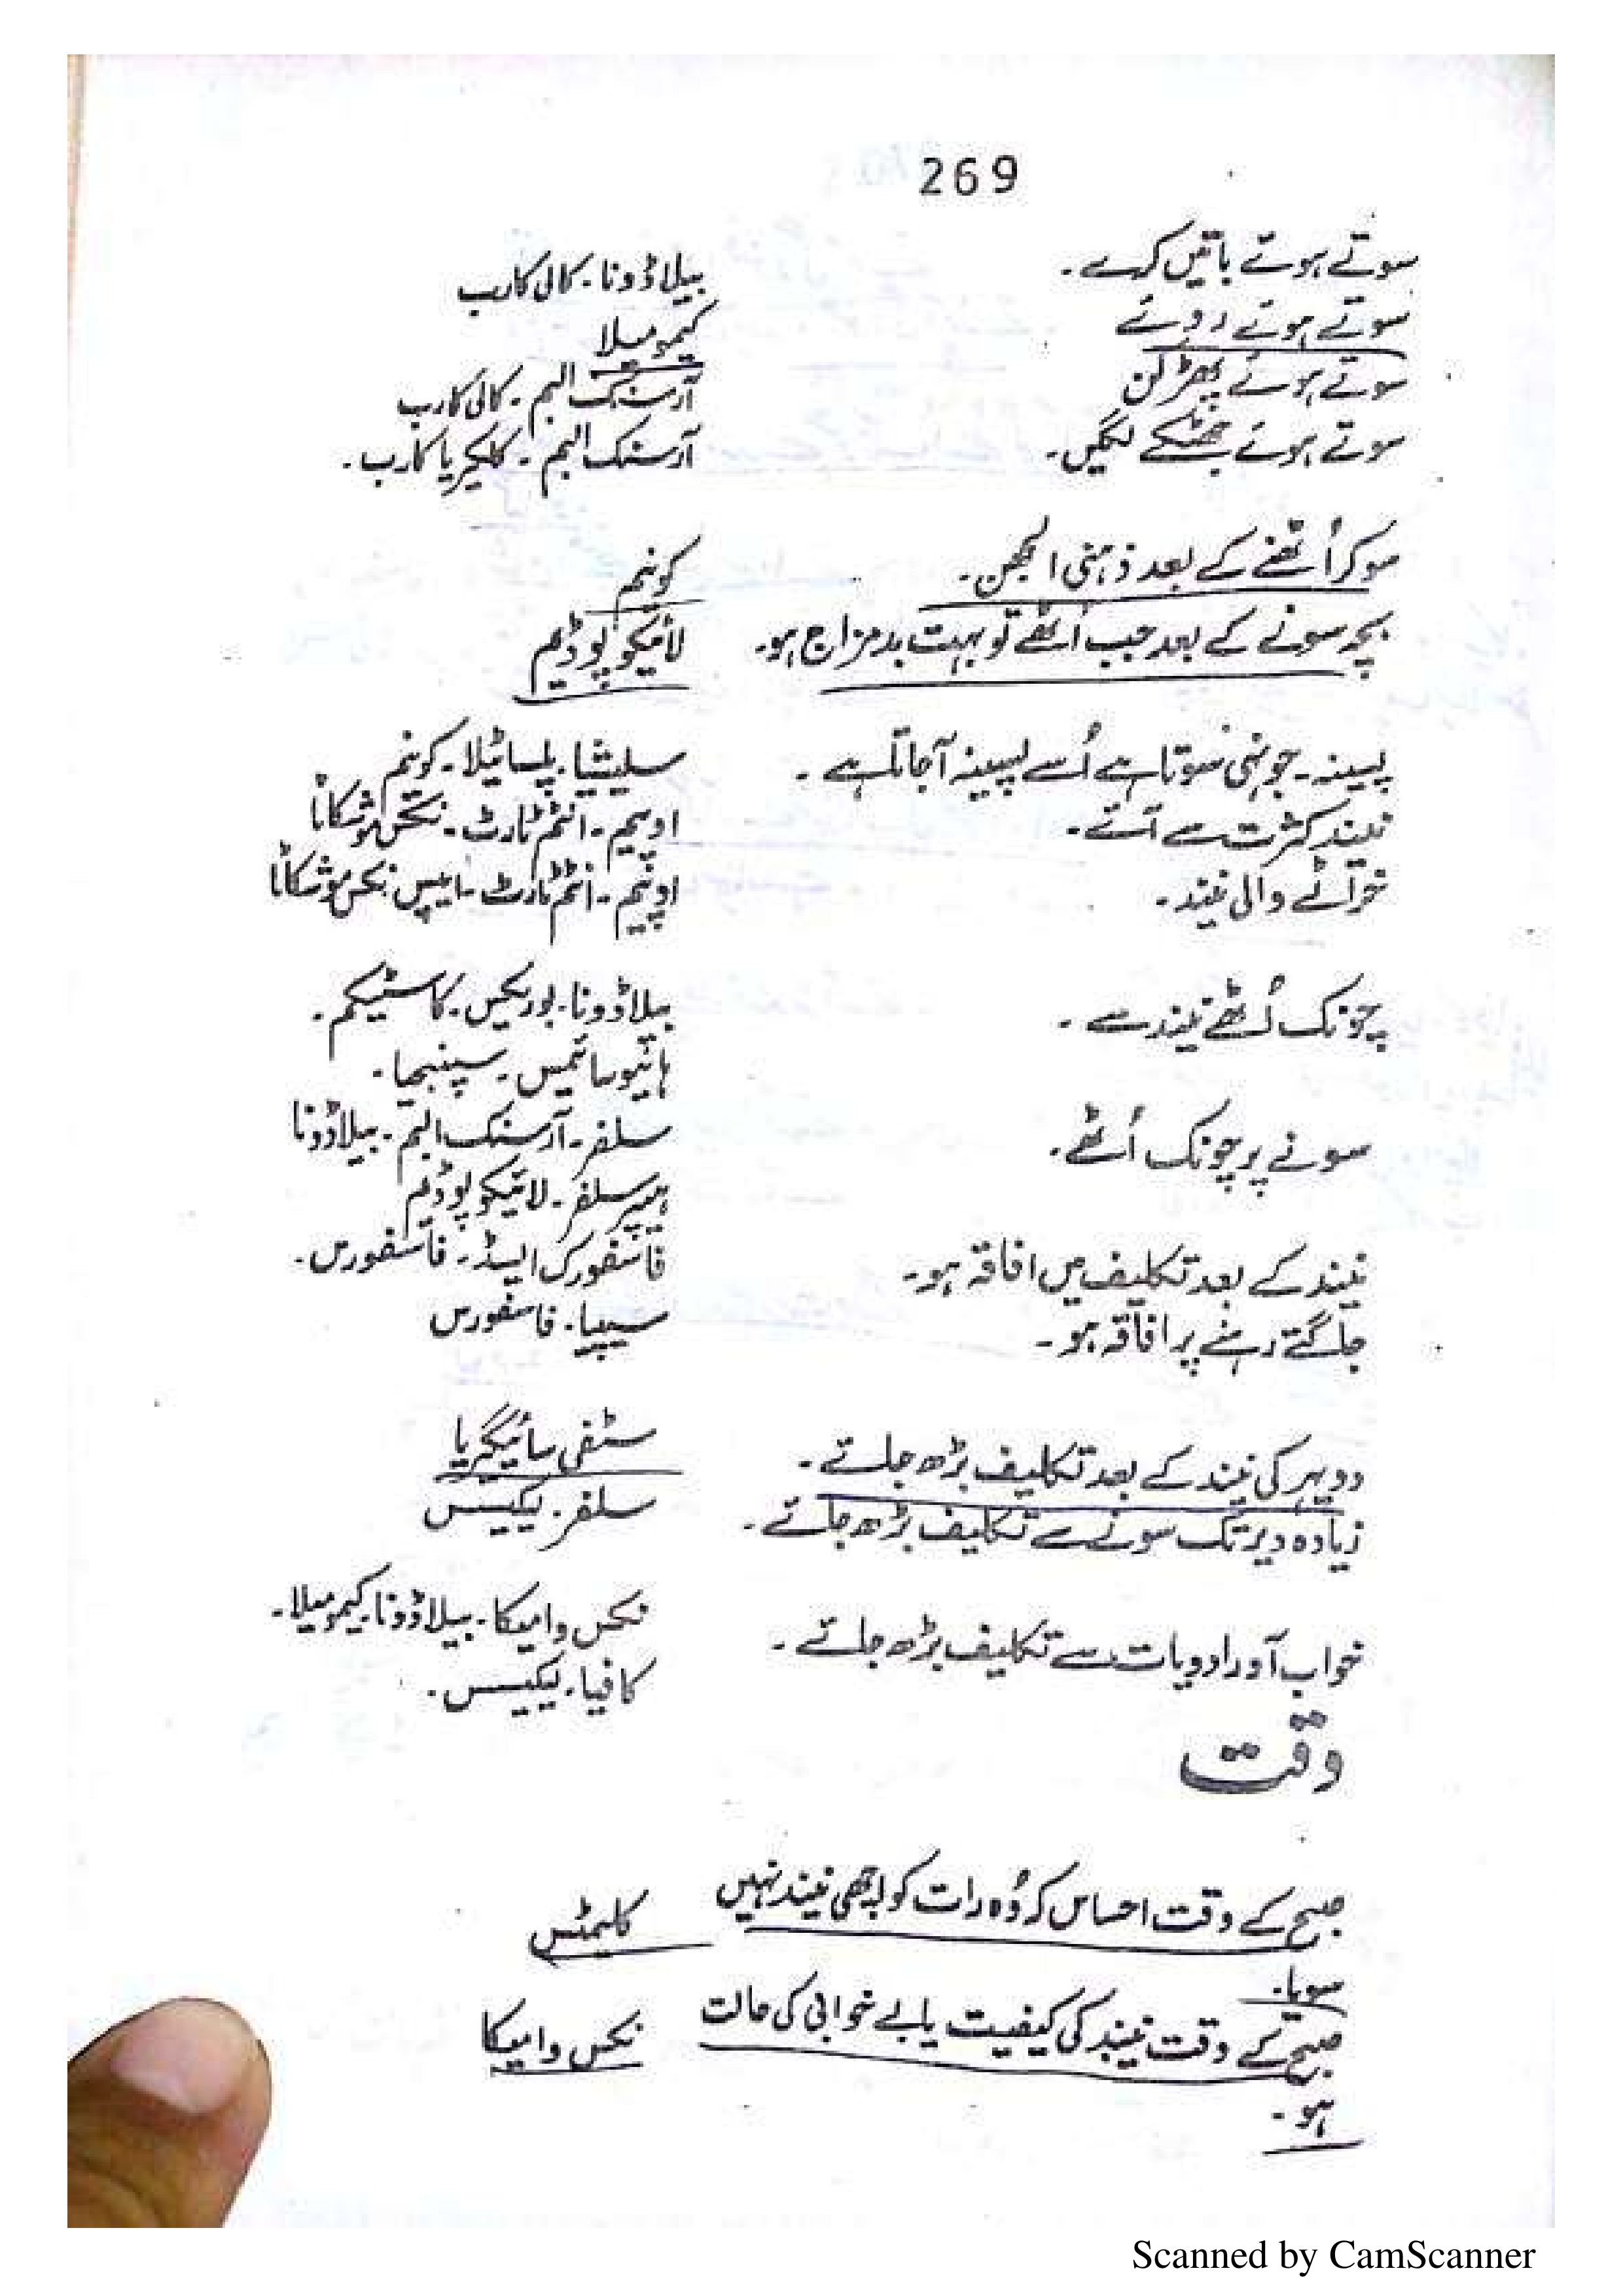 269
سوتے ہوئے باتیں کرے۔ بیلاڈونا۔ کالی کارب
سوتے ہوئے روئے کیمومیلا
سوتے ہوئے پھڑکن آرسنک البم۔ کالی کارب
سوتے ہوئے جھٹکے لگیں۔ آرسنک البم۔ کلکیریا کارب۔
سو کر اُٹھنے کے بعد ذہنی الجھن۔ کونیم
بچہ سونے کے بعد جب اُٹھے تو بہت بدمزاج ہو۔ لائیکوپوڈیم
پسینہ۔ جونہی سوتا ہے اُسے پسینہ آجاتا ہے۔ سلیشیا۔ پلساٹیلا۔ کونیم
نیند کثرت سے آئے۔ اوپیم۔ انٹم ٹارٹ۔ نکس موشکاٹا
خراٹے والی نیند۔ اوپیم۔ انٹم ٹارٹ۔ ایپس نکس موشکاٹا
چونک اُٹھے نیند سے۔ بیلاڈونا۔ بوریکس۔ کاسٹیکم۔
ہائیوسائمس۔ سپنجیا۔
سونے پر چونک اُٹھے۔ سلفر۔ آرسنک البم۔ بیلاڈونا
ہیپر سلفر۔ لائیکوپوڈیم
نیند کے بعد تکلیف میں افاقہ ہو۔ فاسفورک ایسڈ۔ فاسفورس۔
جاگتے رہنے پر افاقہ ہو۔ سیپیا۔ فاسفورس
دوپہر کی نیند کے بعد تکلیف بڑھ جائے۔ سٹفی سائیگریا
زیادہ دیر تک سونے سے تکلیف بڑھ جائے۔ سلفر۔ لیکیسس
خواب آور ادویات سے تکلیف بڑھ جائے۔ نکس وامیکا۔ بیلاڈونا۔ کیمومیلا۔
کافیا۔ لیکیسس۔
وقت
صبح کے وقت احساس کہ وُہ رات کو اچھی نیند نہیں کلیمٹس
سویا۔
صبح کے وقت نیند کی کیفیت یا بے خوابی کی حالت نکس وامیکا
ہو۔
Scanned by CamScanner